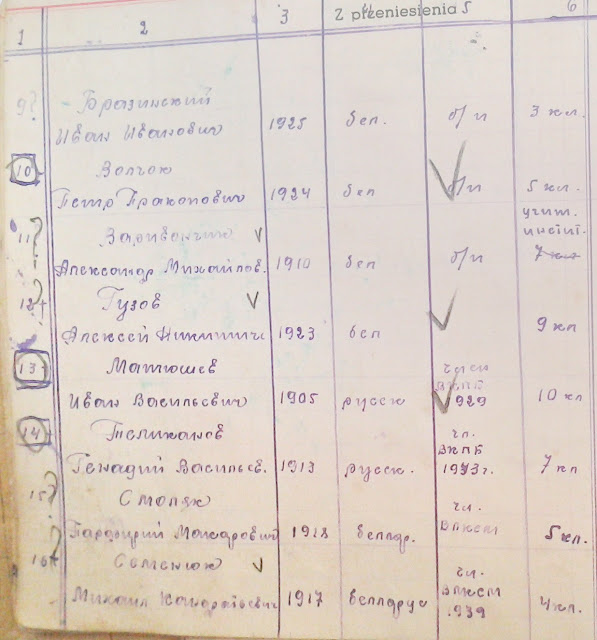 Z przeniesienia
1 2 3 4 5 6
9?
Бразинский
Иван Иванович 1925 бел. б/п 3 кл.
10 Волчок
Петр Пракопович 1924 бел б/п 5 кл.
11 ? учит. инстит.
Александр Михайлов. 1910 бел б/п 7 кл
12 + Гузов
Алексей Никитич 1923 бел 9 кл
13 Матюшев
Иван Васильевич 1905 русск член ВКПБ 1929 10 кл
14 Телиханов
Генадий Васильев. 1913 русск. чл. ВКПБ 1943г. 7 кл
15 ? Смоляк
Парфирий Макарович 1918 беллар. чл. ВЛКСМ 5 кл.
16 Семенюк
Михаил 1917 велларус чл. ВЛКСМ 1939 4 кл.